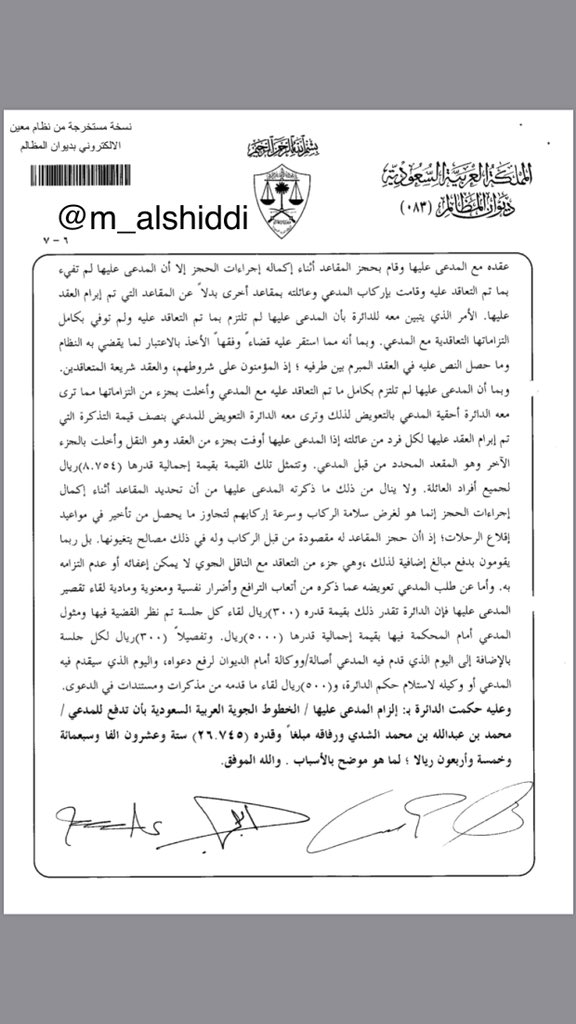 نسخة مستخرجة من نظام معين
الالكتروني بديوان المظالم
بسم الله الرحمن الرحيم
المملكة العربية السعودية
ديوان المظالم (٠٨٣)
@m_alshiddi
٦ - ٧
عقده مع المدعى عليها وقام بحجز المقاعد أثناء إكماله إجراءات الحجز إلا أن المدعى عليها لم تفيء
بما تم التعاقد عليه وقامت بإركاب المدعي وعائلته بمقاعد أخرى بدلاً عن المقاعد التي تم إبرام العقد
عليها. الأمر الذي يتبين معه للدائرة بأن المدعى عليها لم تلتزم بما تم التعاقد عليه ولم توفي بكامل
التزاماتها التعاقدية مع المدعي. وبما أنه مما استقر عليه قضاءً وفقهاً الأخذ بالاعتبار لما يقضي به النظام
وما حصل النص عليه في العقد المبرم بين طرفيه ؛ إذ المؤمنون على شروطهم، والعقد شريعة المتعاقدين.
وبما أن المدعى عليها لم تلتزم بكامل ما تم التعاقد عليه مع المدعي وأخلت بجزء من التزاماتها مما ترى
معه الدائرة أحقية المدعي بالتعويض لذلك وترى معه الدائرة التعويض للمدعي بنصف قيمة التذكرة التي
تم إبرام العقد عليها لكل فرد من عائلته إذا المدعى عليها أوفت بجزء من العقد وهو النقل وأخلت بالجزء
الآخر وهو المقعد المحدد من قبل المدعي. وتتمثل تلك القيمة بقيمة إجمالية قدرها (٨.٧٥٤)ريال
لجميع أفراد العائلة. ولا ينال من ذلك ما ذكرته المدعى عليها من أن تحديد المقاعد أثناء إكمال
إجراءات الحجز إنما هو لغرض سلامة الركاب وسرعة إركابهم لتجاوز ما يحصل من تأخير في مواعيد
إقلاع الرحلات؛ إذ اأن حجز المقاعد له مقصودة من قبل الركاب وله في ذلك مصالح يتغيونها. بل ربما
يقومون بدفع مبالغ إضافية لذلك ،وهي جزء من التعاقد مع الناقل الجوي لا يمكن إعفائه أو عدم التزامه
به. وأما عن طلب المدعي تعويضه عما ذكره من أتعاب الترافع وأضرار نفسية ومعنوية ومادية لقاء تقصير
المدعى عليها فإن الدائرة تقدر ذلك بقيمة قدره (٣٠٠)ريال لقاء كل جلسة تم نظر القضية فيها ومثول
المدعي أمام المحكمة فيها بقيمة إجمالية قدرها (٥٠٠٠)ريال. وتفصيلاً (٣٠٠)ريال لكل جلسة
بالإضافة إلى اليوم الذي قدم فيه المدعي أصالة/ووكالة أمام الديوان لرفع دعواه، واليوم الذي سيقدم فيه
المدعي أو وكيله لاستلام حكم الدائرة، و(٥٠٠)ريال لقاء ما قدمه من مذكرات ومستندات في الدعوى.
وعليه حكمت الدائرة بـ: إلزام المدعى عليها / الخطوط الجوية العربية السعودية بأن تدفع للمدعي/
محمد بن عبدالله بن محمد الشدي ورفاقه مبلغاً وقدره (٢٦.٧٤٥) ستة وعشرون الفا وسبعمائة
وخمسة وأربعون ريالا ؛ لما هو موضح بالأسباب . والله الموفق.